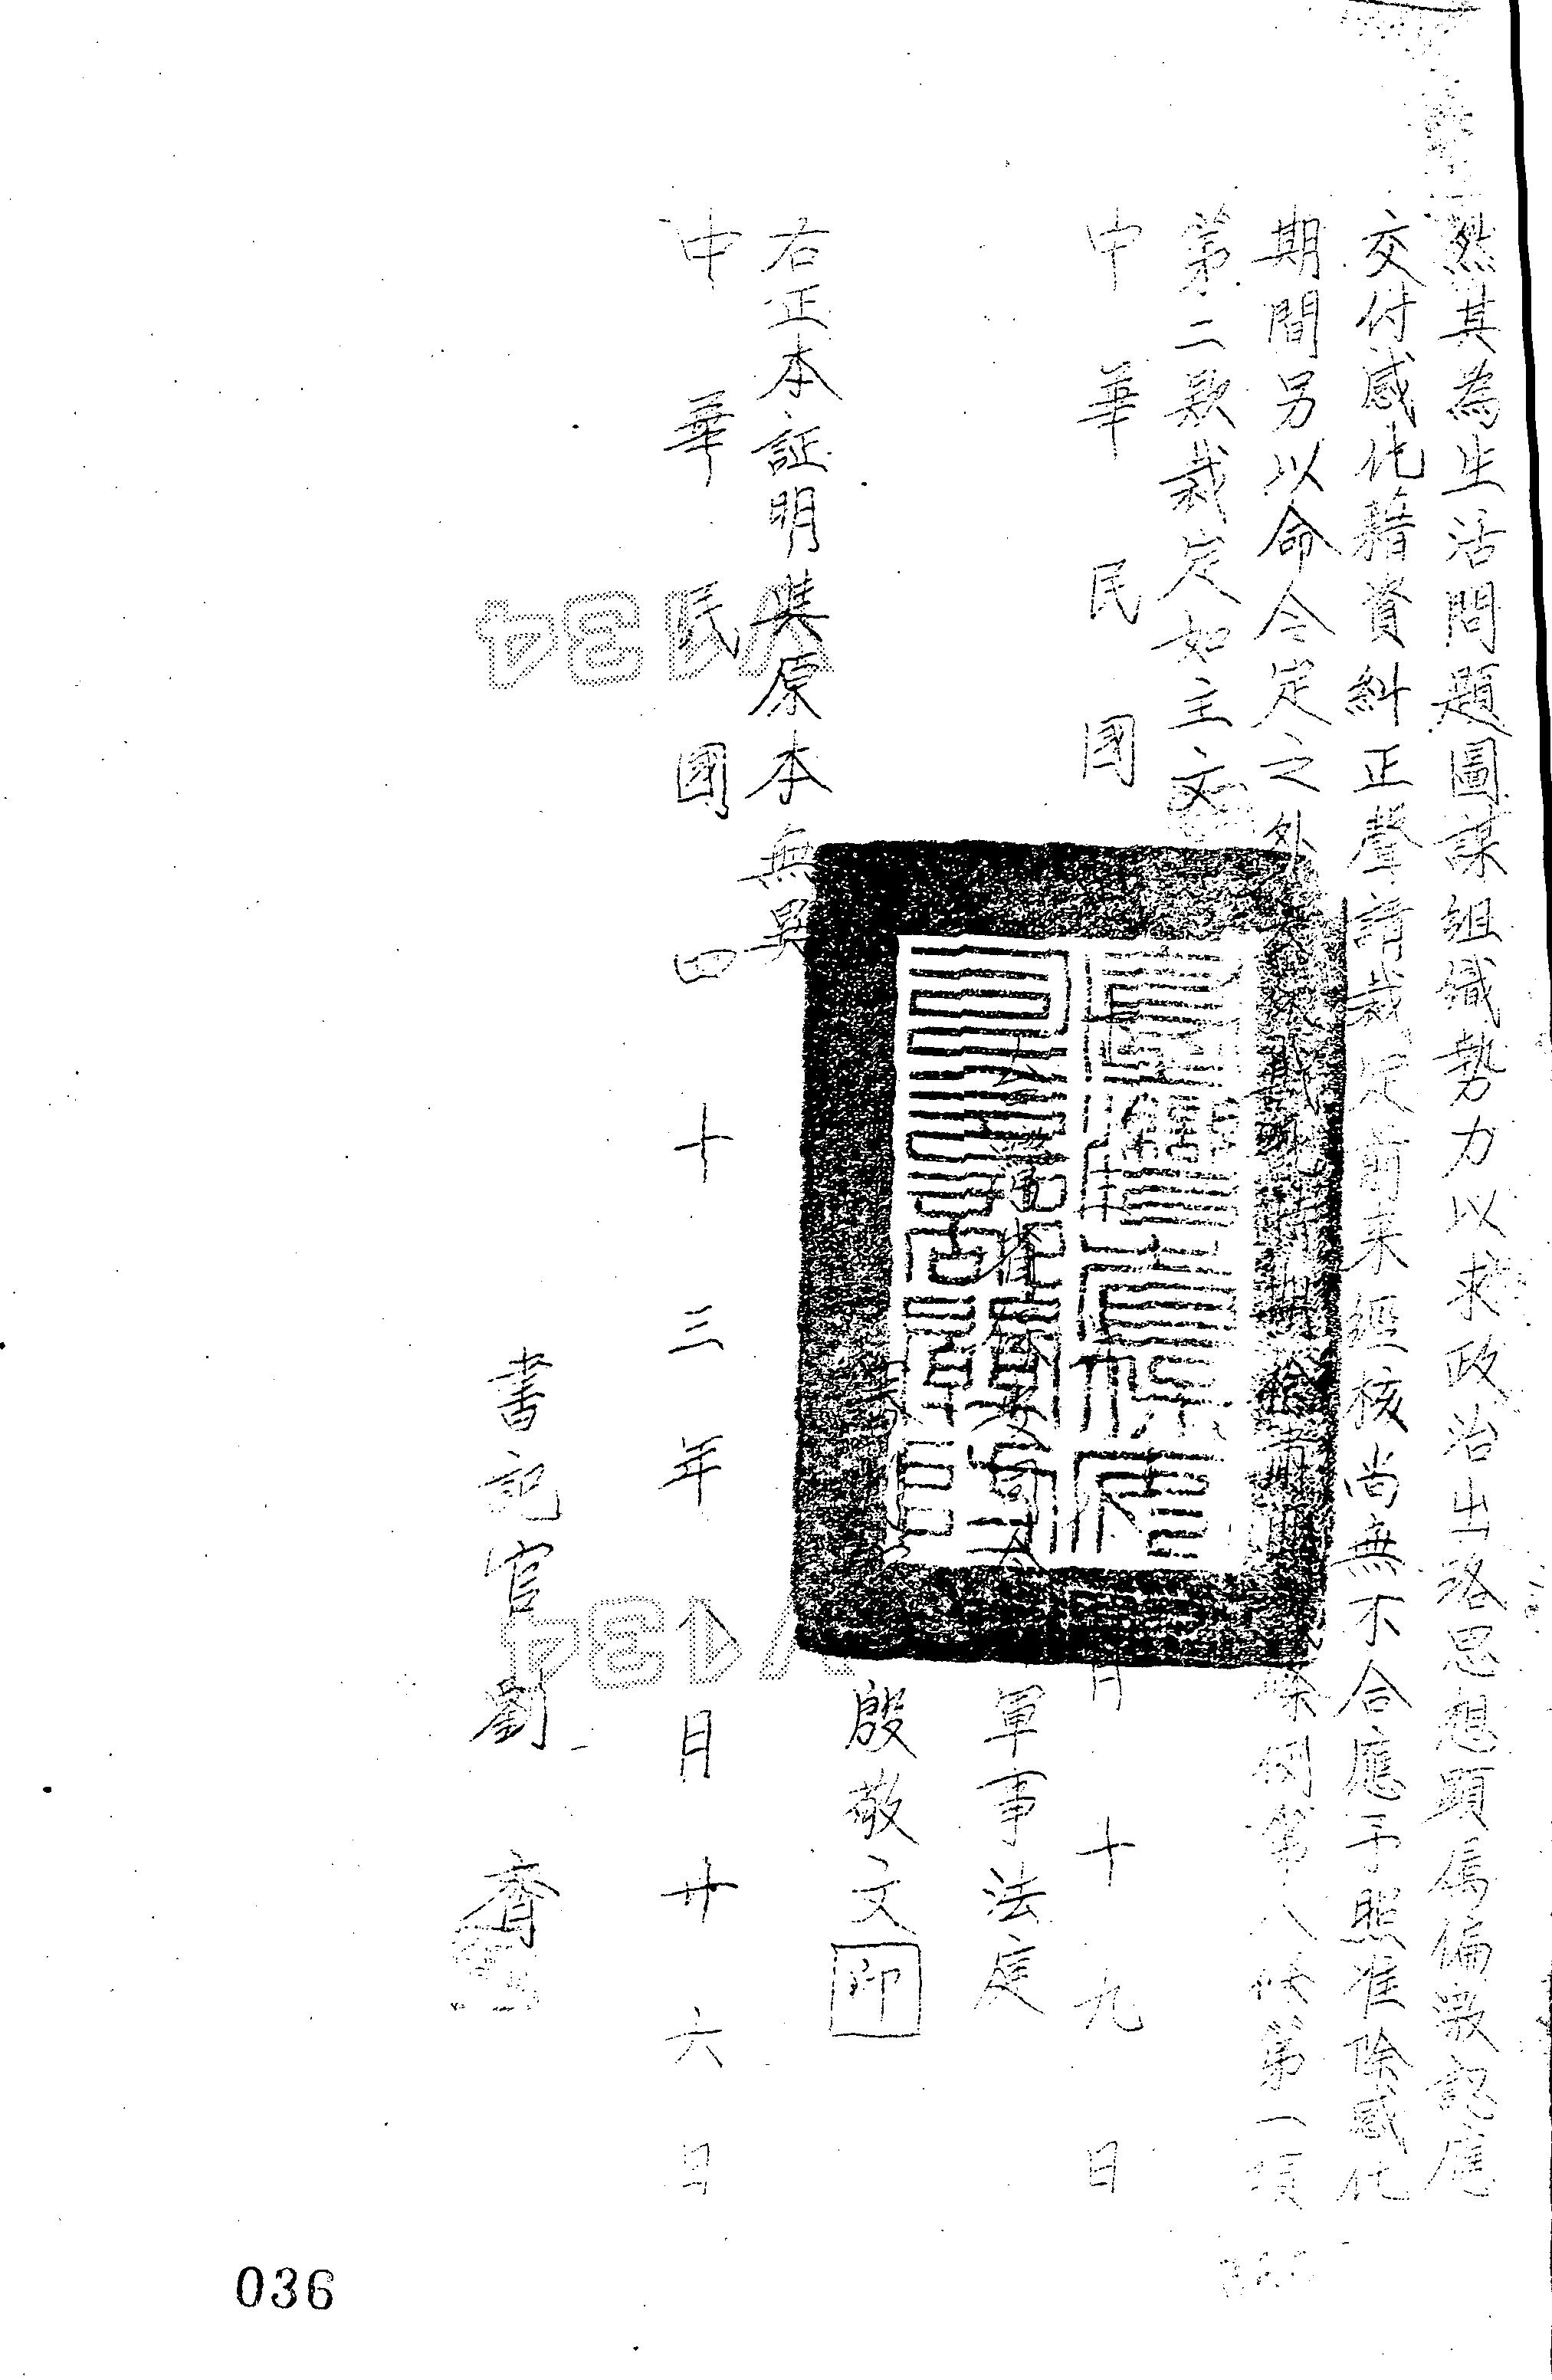 然其為生活問題圖謀組織勢力以求政治出路思想顯為偏激認應
交付感化藉資糾正聲請裁定前來經核尚無不合應予照准除感化
期間另以命令定之外 條例第八條第一項
第二款裁定如主文
中華民國 月十九日
軍事法庭
殷敬文印
右正本証明與原本無異
中華民國四十三年八月廿六日
書記官劉齊
036